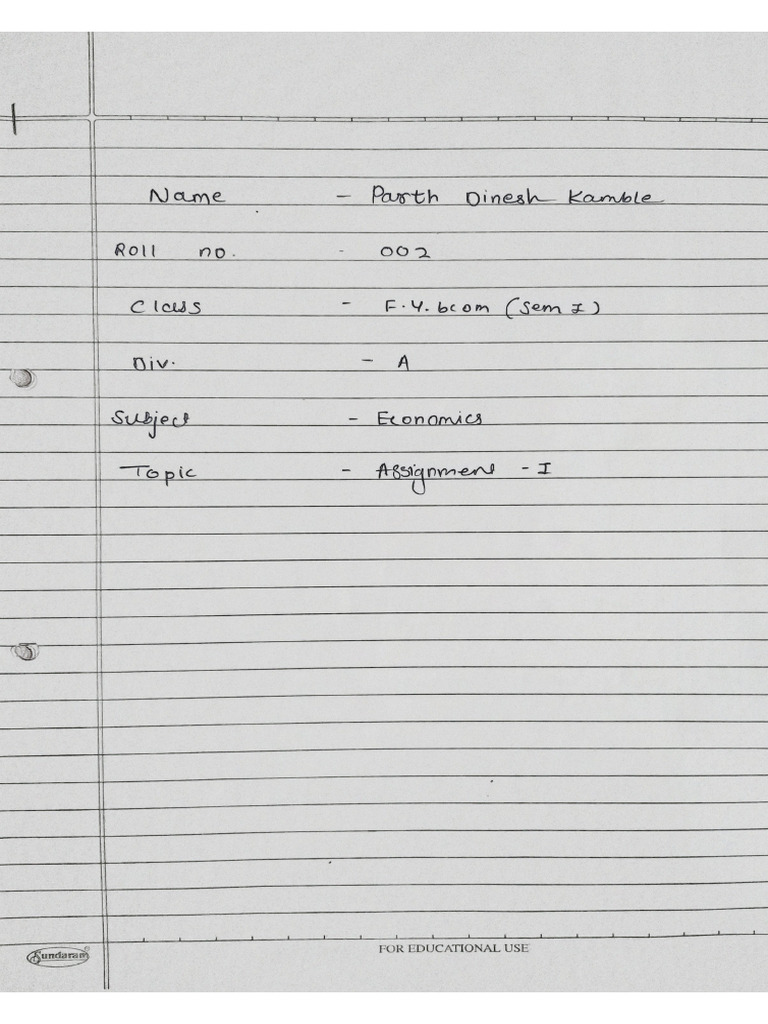 Name - Parth Dinesh Kamble
Roll no. - 002
Class - F.Y. bcom (Sem I)
Div. - A
Subject - Economics
Topic - Assignment - I
Sundaram®
FOR EDUCATIONAL USE